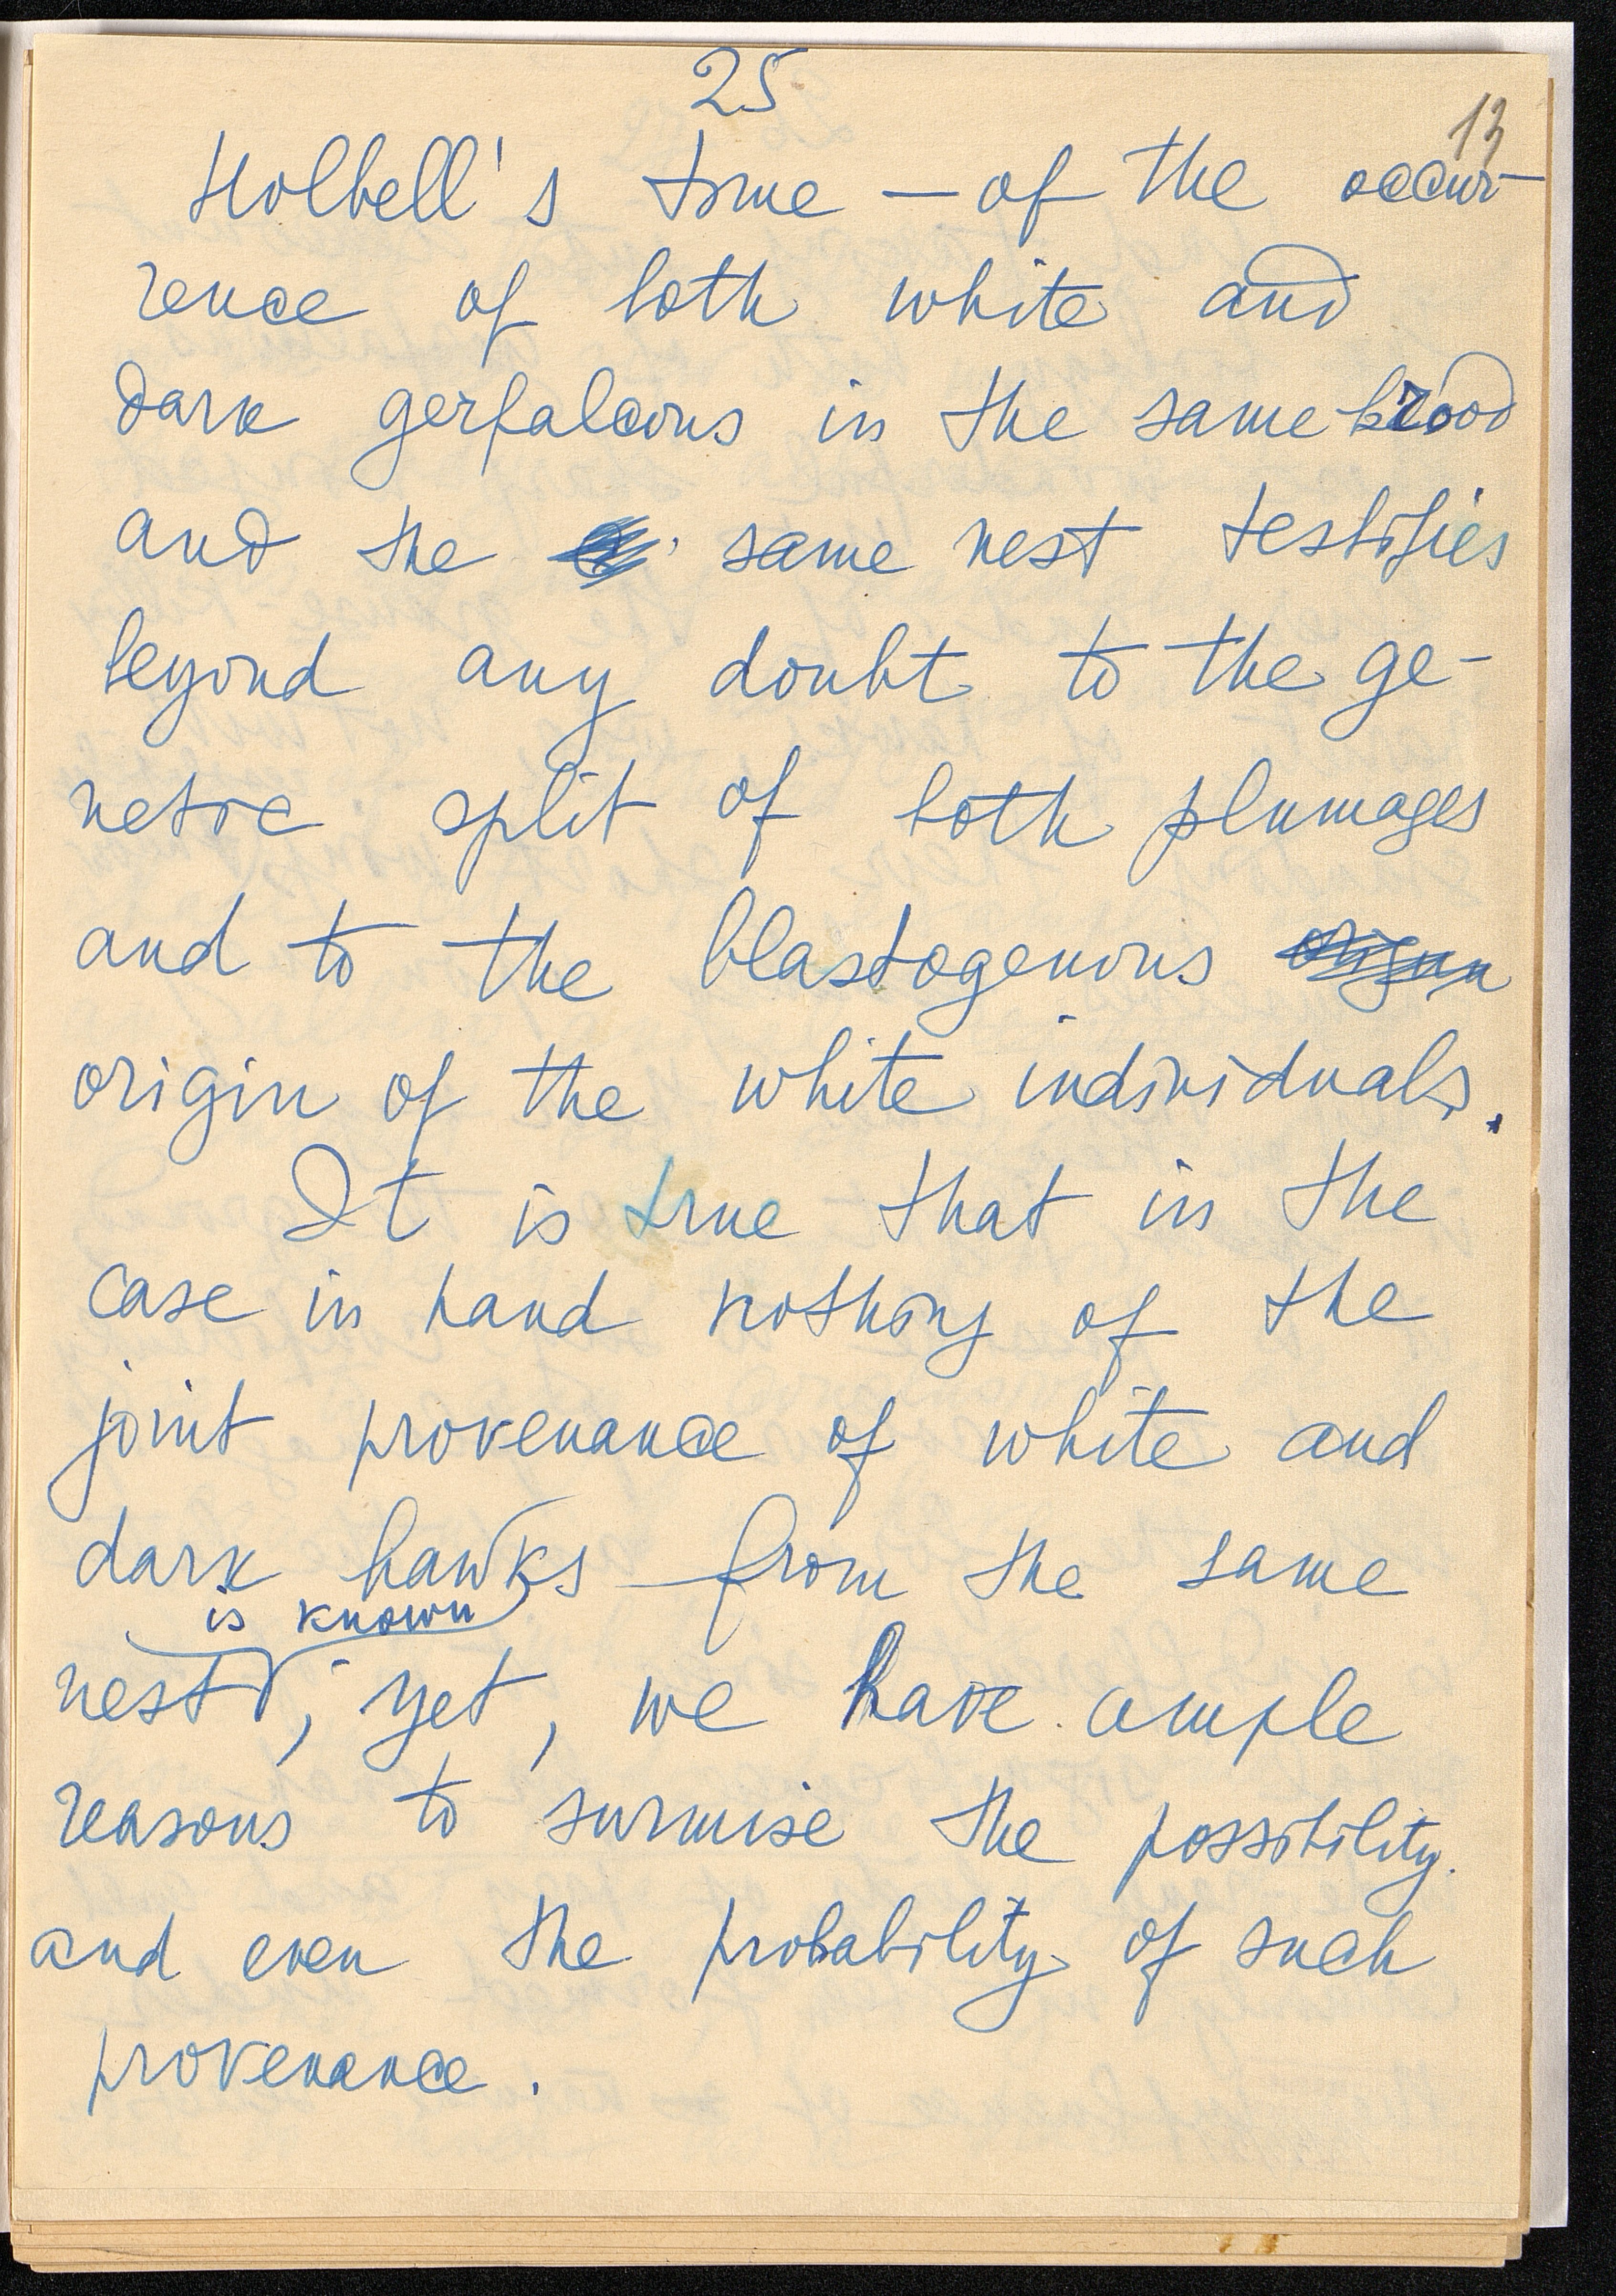 25
13
Holbell's time — of the occur-
rence of both white and
dark gerfalcons in the same brood
and the same nest testifies
beyond any doubt to the ge-
netic split of both plumages
and to the blastogenous origin
origin of the white individuals.
It is true that in the
case in hand nothing of the
joint provenance of white and
dark hawks from the same
is known
nest; yet, we have ample
reasons to surmise the possibility
and even the probability of such
provenance.